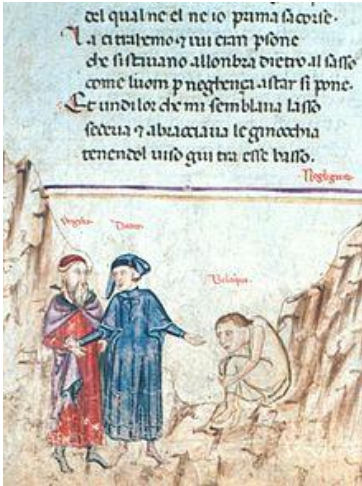 del qual ne el ne io prima sacorse.
La ci trahemo ⁊ iui eran psone
che si stauano allonbra dietro al sasso
come luom p neghença astar si pone.
Et un di lor che mi semblaua lasso
sedeua ⁊ abracciaua le ginocchia
tenendol uiso giu tra esse basso.
Dante.